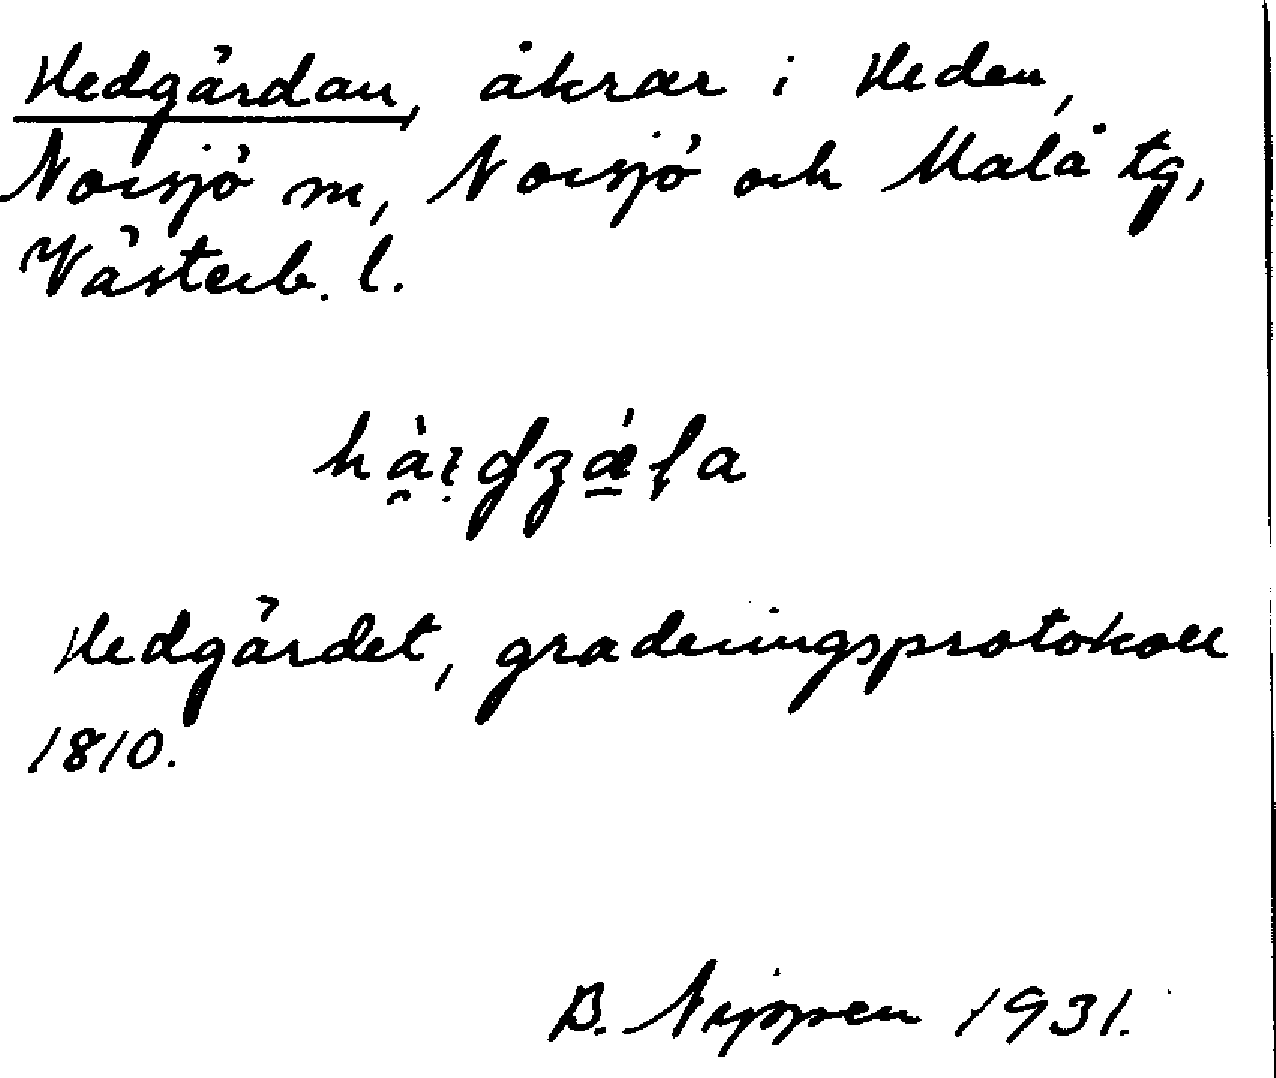 Hedgärdan, åkrar i Heden,
Norsjö sn, Norsjö och Malå tg,
Västerb. l.
Hedgärdet, graderingsprotokoll
1810.
B. 1931.